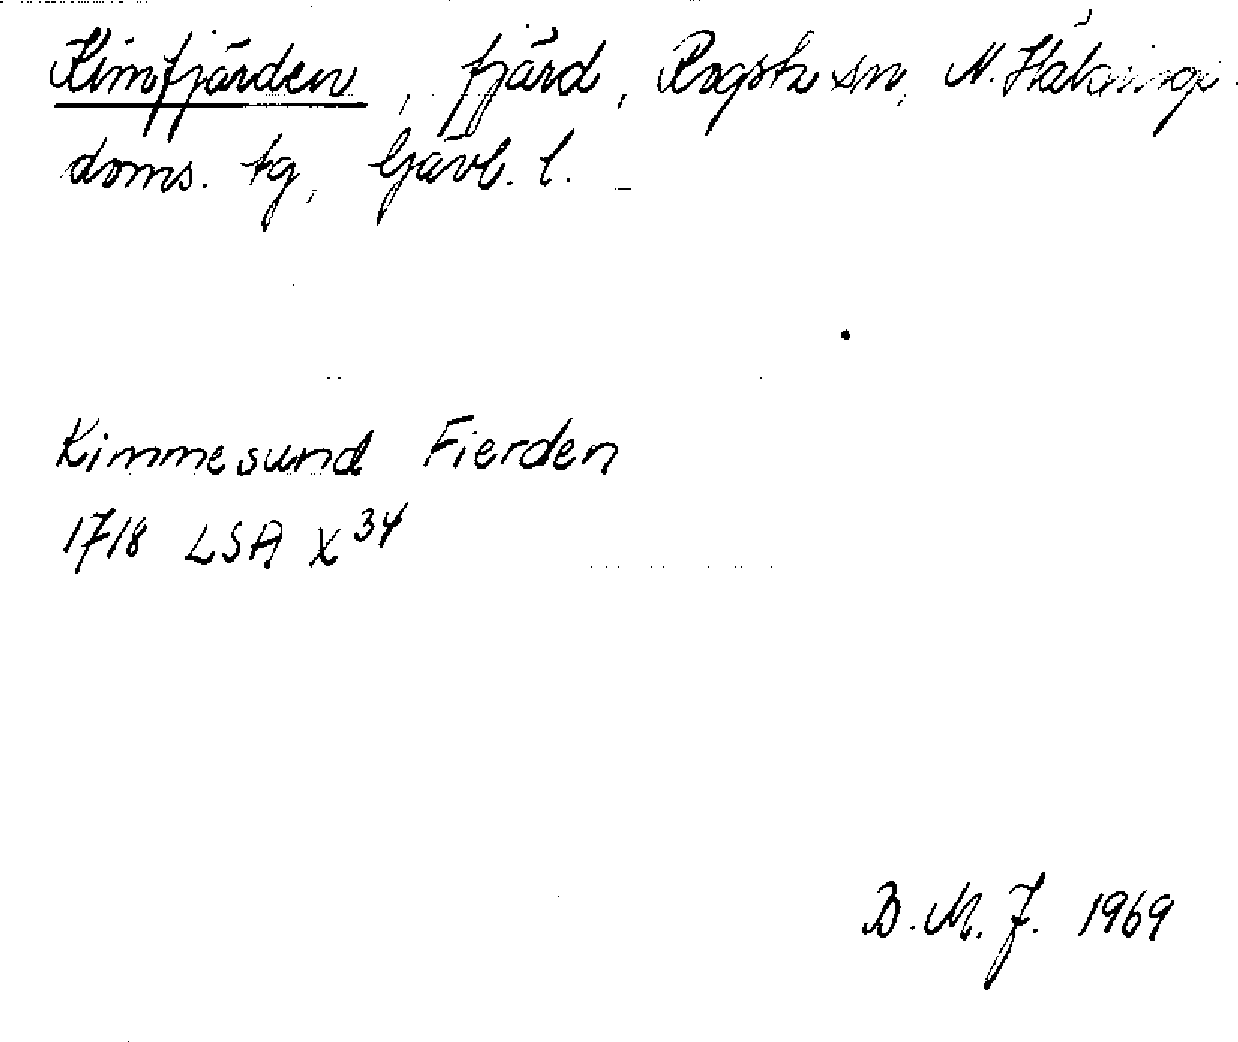 Kimfjärden, fjärd, Rogsta sn, N. Hälsinge
doms. tg, Gävl. l.
Kimmesund Fierden
1718 LSA X 34
B. M. J. 1969